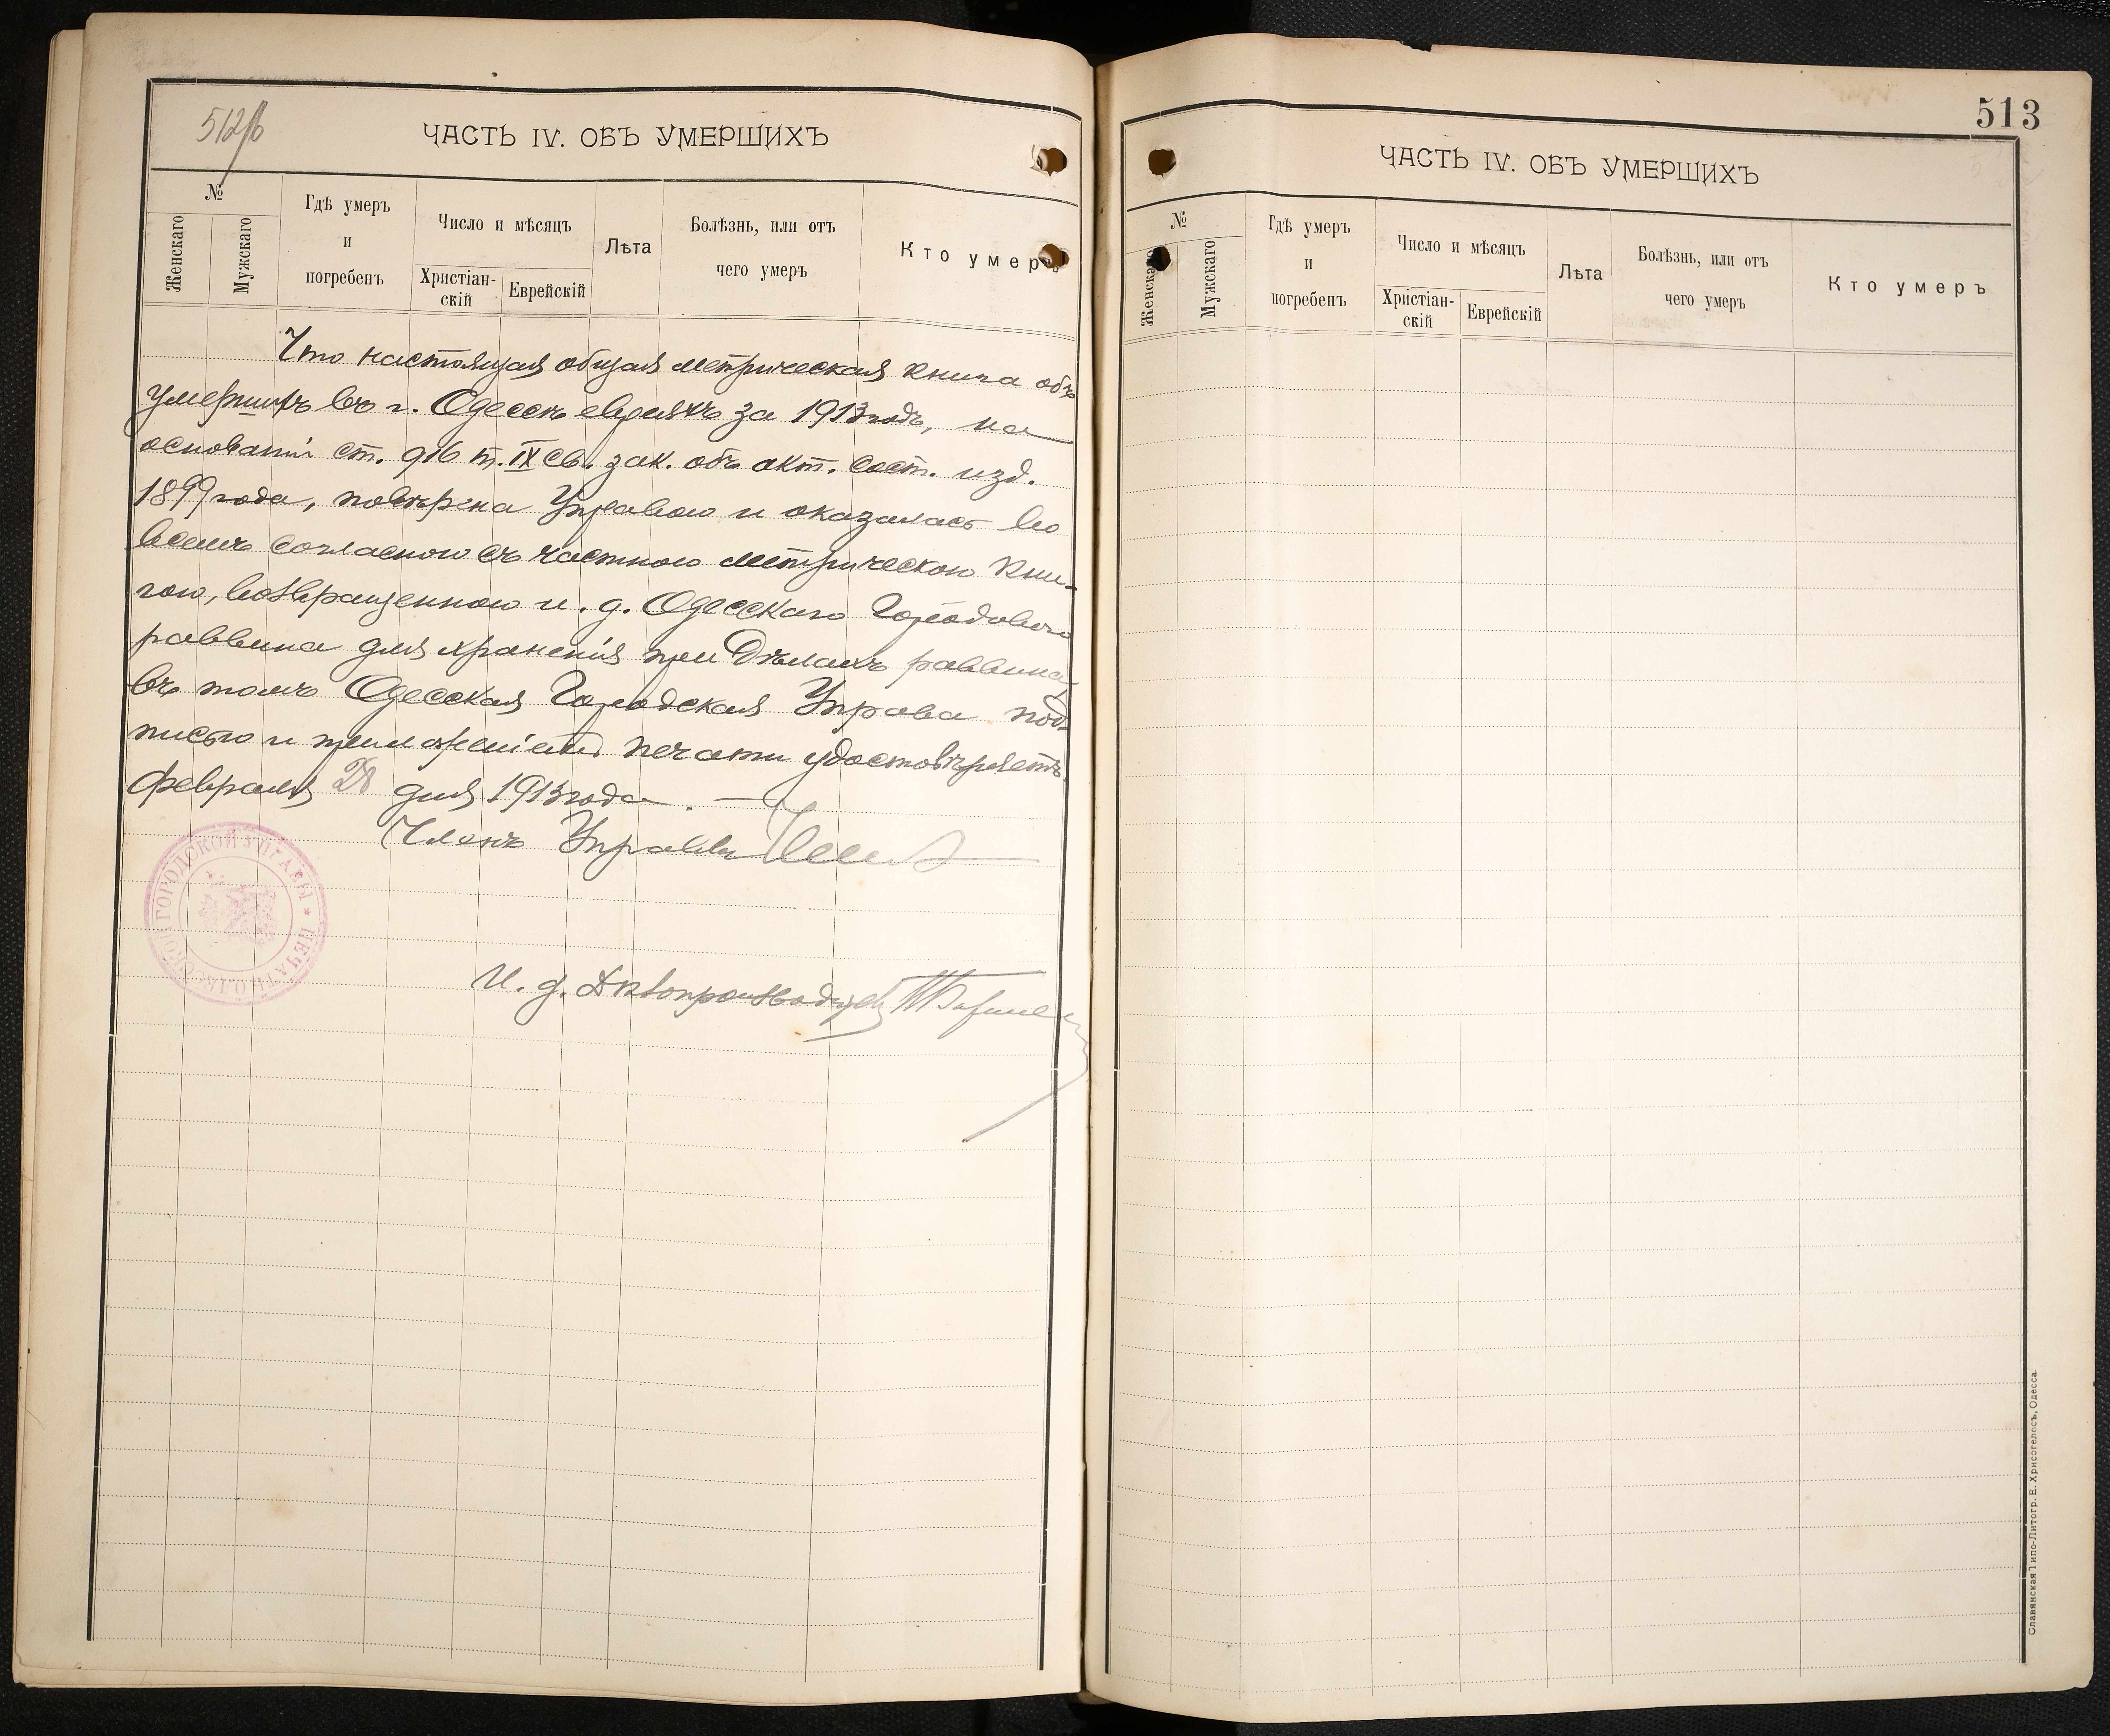 512/б
ЧАСТЬ IV. ОБЪ УМЕРШИХЪ
№
Женскаго
Мужскаго
Гдѣ умеръ
и
погребенъ
Число и мѣсяцъ
Христіан-
скій
Еврейскій
Лѣта
Болѣзнь, или отъ
чего умеръ
Кто умеръ
Что настоящая общая метрическая книга объ
умершихъ въ г. Одессѣ евреяхъ за 1913 годъ, на
основаніи ст. 916 т. IX св. зак. объ акт. сост. изд.
1899 года, повѣрена Управою и оказалась во
всемъ согласною съ частною метрическою кни-
гою, возвращенною и. д. Одесскаго Городового
раввина для храненія при Дѣлахъ раввина,
въ томъ Одесская Городская Управа под-
писью и приложеніемъ печати удостовѣряетъ.
Февраля 28 дня 1913 года. —
Членъ Управы
ПЕЧАТЬ ОДЕССКОЙ ГОРОДСКОЙ УПРАВЫ
И. д. Дѣлопроизводителя
513
ЧАСТЬ IV. ОБЪ УМЕРШИХЪ
№
Женскаго
Мужскаго
Гдѣ умеръ
и
погребенъ
Число и мѣсяцъ
Христіан-
скій
Еврейскій
Лѣта
Болѣзнь, или отъ
чего умеръ
Кто умеръ
Славянская Типо-Литогр. Е. Хрисогелосъ, Одесса.